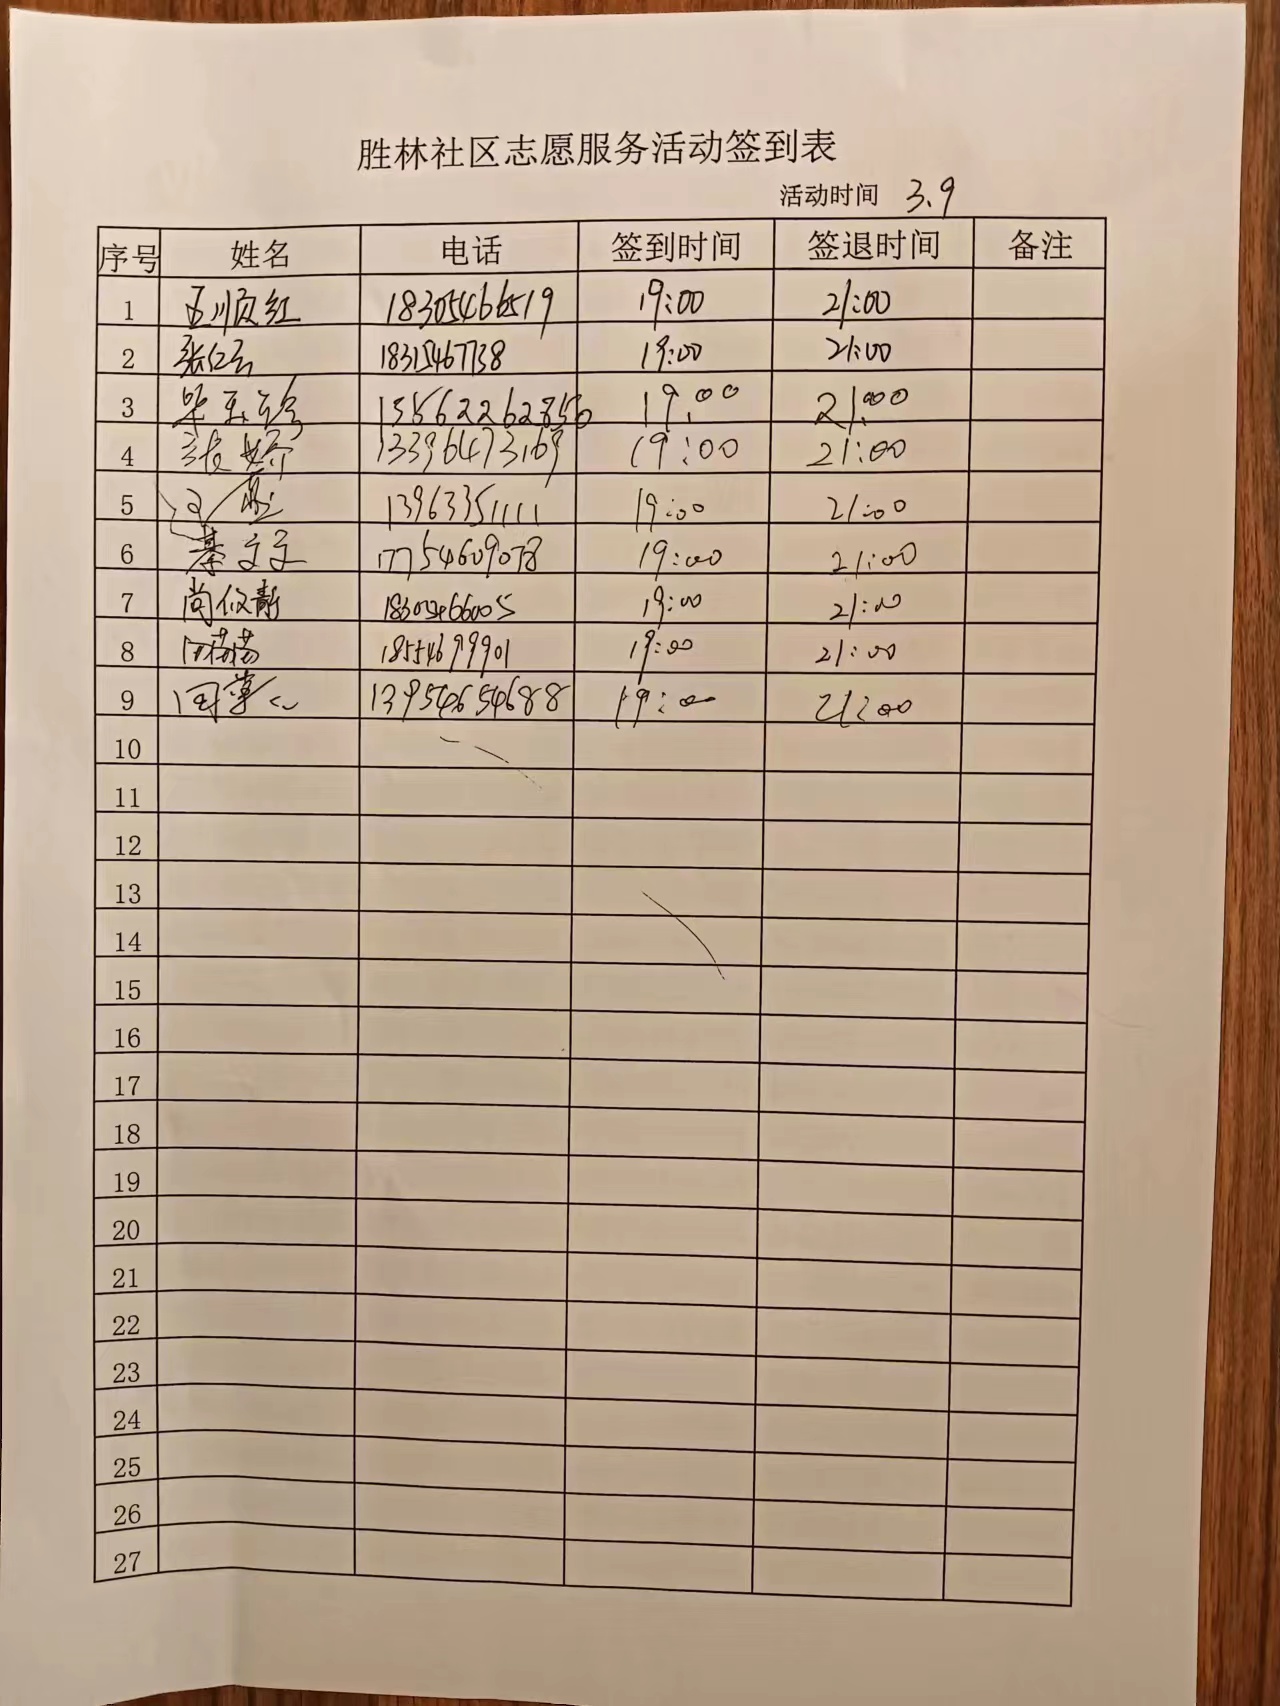 胜林社区志愿服务活动签到表
活动时间 3.9
序号 姓名 电话 签到时间 签退时间 备注
1 18305466519 19:00 21:00
2 张仁云 18315467738 19:00 21:00
3 15562262850 19:00 21:00
4 张娇 13396473169 19:00 21:00
5 13963351111 19:00 21:00
6 綦文文 17754609078 19:00 21:00
7 尚俊静 18305466005 19:00 21:00
8 18554699901 19:00 21:00
9 13954654688 19:00 21:00
10
11
12
13
14
15
16
17
18
19
20
21
22
23
24
25
26
27